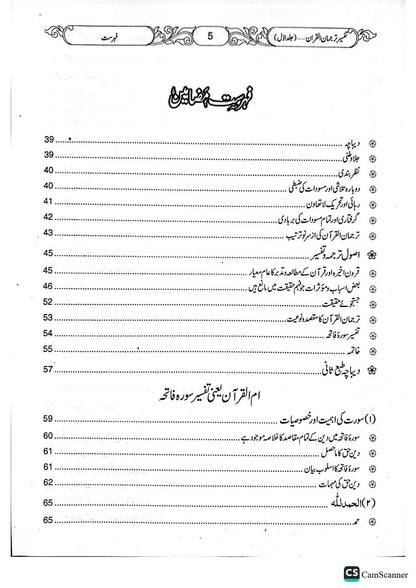 تفسیر ترجمان القرآن ___ (جلد اول) 5 فہرست
فہرست مضامین
دیباچہ 39
جلا وطنی 39
نظر بندی 40
دوبارہ تلاشی اور مسودات کی ضبطی 40
رہائی اور تحریک لاتعاون 41
گرفتاری اور تمام مسودات کی بربادی 42
ترجمان القرآن کی از سر نو ترتیب 43
اصول ترجمہ و تفسیر 45
قرون اخیرہ اور قرآن کے مطالعہ و تدبر کا عام معیار 45
بعض اسباب و مؤثرات جو فہم حقیقت میں مانع ہیں 46
جستجوئے حقیقت 52
ترجمان القرآن کا مقصد و نوعیت 53
تفسیر سورۂ فاتحہ 54
خاتمہ 55
دیباچہ طبع ثانی 57
ام القرآن یعنی تفسیر سورہ فاتحہ
(۱) سورت کی اہمیت اور خصوصیات 59
سورۂ فاتحہ میں دین کے تمام مقاصد کا خلاصہ موجود ہے 60
دین حق کا ماحصل 61
سورۂ فاتحہ کا اسلوب بیان 61
دین حق کی مہمات 62
(۲) الحمد للہ 65
حمد 65
CS CamScanner